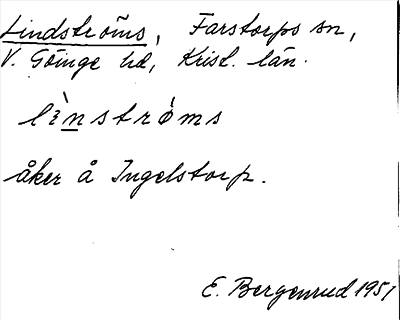 Lindströms, Farstorps sn,
V. Göinge hd, Krist. län.
lìnstrø̀ms
åker å Ingelstorp.
E. Bergenrud 1951